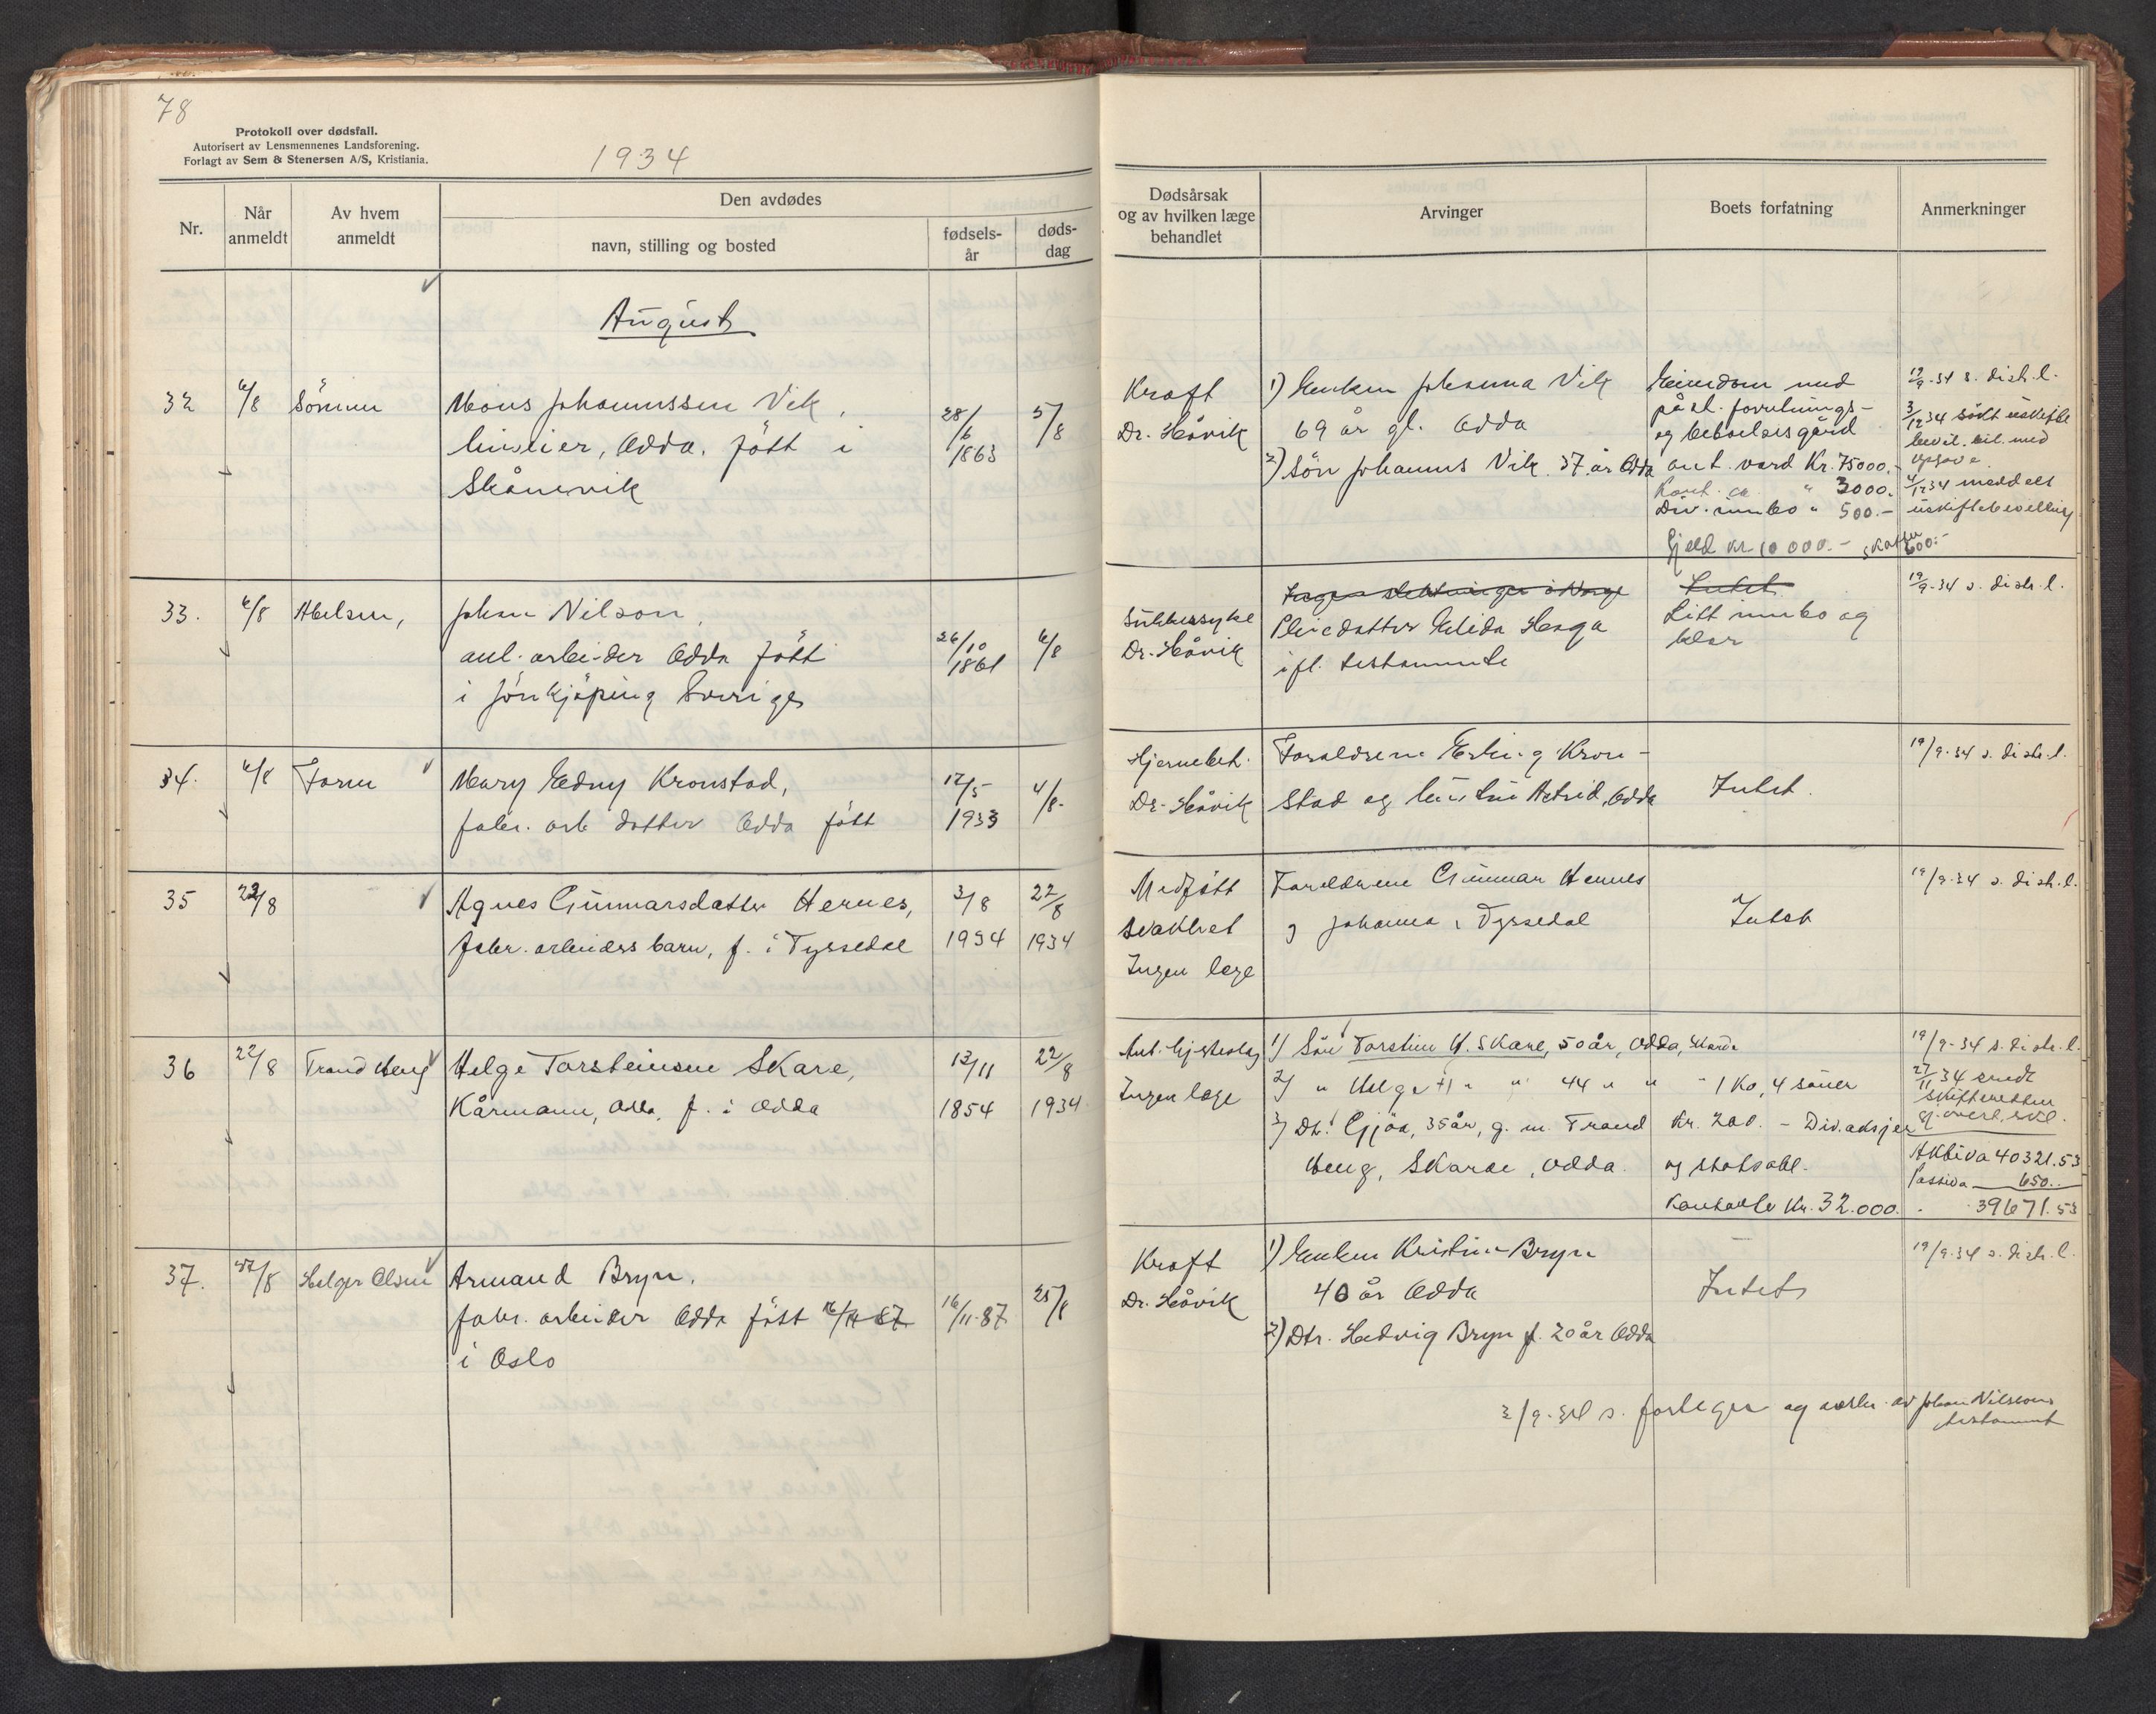 78
Protokoll over dødsfall.
Autorisert av Lensmennenes Landsforening.
Forlagt av Sem & Stenersen A/S, Kristiania.
1934
Nr.
Når anmeldt
Av hvem anmeldt
Den avdødes
navn, stilling og bosted
fødsels-år
døds-dag
Dødsårsak og av hvilken læge behandlet
Arvinger
Boets forfatning
Anmerkninger
August
32 6/8 Sönnen
Mons Johannessen Vik,
Odda. født i
Skånevik
28/6 1863
5/8
Kraft
Dr. Håvik
1) Enken Johanna Vik
69 år gl. Odda
2) Sön Johannes Vik 37 år Odda
Eiendom med
påst. forretnings-
og beboelsesgård
ant. verd Kr. 75000.-
Kont. ca. " 3000.-
Div. innbo " 500.-
Gjeld kr 10 000.- skatter 600.-
19/9-34 s. distr. l.
3/12 34 sökt uskifte
bevil. bil. med
opgave.
4/12 34 meddelt
uskiftebevilling
33. 6/8 Abelsen,
Johan Nilson,
anl. arbeider Odda født
i Jönkjöping Sverige
26/10 1861
6/8
Sukkersyke
Dr. Håvik
Ingen slektninger i Norge
Pleiedatter Elida Haga
ifl. testamente
Intet
Litt innbo og
klær
19/9-34 s. distr. l.
34. 6/8 Faren
Mary Edny Kronstad,
fabr. arb datter Odda født
17/5 1933
4/8-
Hjernebet.
Dr. Håvik
Foreldrene Erling Kron-
stad og hustru Astrid, Odda
Intet.
19/9-34 s. distr. l.
35 22/8
Agnes Gunnarsdatter Hernes,
fabr. arbeiders barn, f. i Tyssedal
3/8 1934
22/8 1934
Medfött
svakhet
Ingen læge
Foreldrene Gunnar Hernes
og Johanna i Tyssedal
Intet
19/9-34 s. distr. l.
36 22/8 Trond Meng
Helge Torsteinsen Skare,
Kårmann, Odda, f. i Odda
13/11 1854
22/8 1934
Ant. hjerteslag
Ingen læge
1) Sön Torstein H. Skare, 50 år, Odda, Skarde
2) " Helge H " " 44 " " "
3) Dt. Gjöa, 35 år, g. m. Trond
Meng, Skarde, Odda.
1 ko, 4 sauer
Kr. 200. - Div. aksjer
og statsobl.
Kontanter Kr. 32.000.
19/9-34 s. distr. l.
27/11 34 sendt
skifteretten
Aktiva 40321.53
Passiva 650..
39671.53
37. 27/8 Helger Olsen
Armand Bryn.
fabr. arbeider Odda født 16/11 87
i Oslo
16/11-87
25/8
Kraft
Dr. Håvik
1) Enken Kristine Bryn
40 år Odda
2) Dtr. Hedvig Bryn f. 20 år Odda
Intet
19/9-34 s. distr. l.
3/9-34 s. av Johan Nilssons
testament